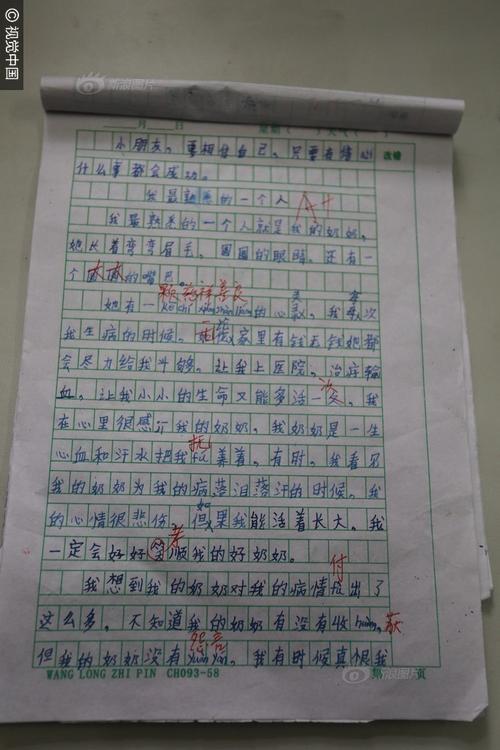 ©视觉中国
新浪图片
月 日 星期( ) 天气( )
小朋友，要相信自己，只要有信心 改错
什么事都会成功。
我最熟悉的一个人 A+
我最熟悉的一个人就是我的奶奶。
她长着弯弯眉毛，圆圆的眼睛。还有一
个大大的嘴巴。
颗慈祥善良
她有一kē cí xiáng shàn liáng的心灵。我每次
我生病的时候。我家里有钱无钱她都
会尽力给我斗够。让我上医院，治疗输
血。让我小小的生命又能多活一次。我
在心里很感订我的奶奶。我奶奶是一生
抚
心血和汗水把我fǔ养着。有时。我看见
我的奶奶为我的病落泪落汗的时候。我
如
的心情很悲伤，但果我能活着长大。我
孝
一定会好好笑顺我的好奶奶。
付
我想到我的奶奶对我的病情出了
这么多。不知道我的奶奶有没有收huò。获
怨言
但我的奶奶没有yuàn yán。我有时候真恨我
WANG LONG ZHI PIN CH093-58 第 页
新浪图片